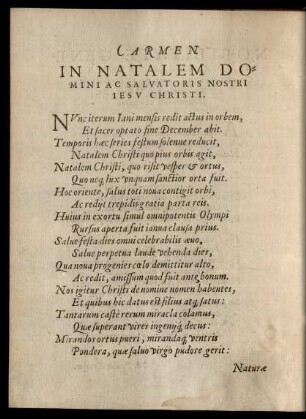 CARMEN
IN NATALEM DO-
MINI AC SALVATORIS NOSTRI
IESV CHRISTI.
NVnc iterum Iani mensis redit actus in orbem,
Et sacer optato fine December abit.
Temporis hæc series festum solenne reducit,
Natalem Christi quo pius orbis agit,
Natalem Christi, quo risit vesper & ortus,
Quo neq; lux vnquam sanctior orta fuit.
Hoc oriente, salus toti noua contigit orbi,
Ac redijt trepidis gratia parta reis.
Huius in exortu simul omnipotentis Olympi
Rursus aperta fuit ianua clausa prius.
Salue festa dies omni celebrabilis æuo,
Salue perpetua laude vehenda dies,
Qua noua progenies cœlo demittitur alto,
Ac redit, amissum quod fuit ante bonum.
Nos igitur Christi de nomine nomen habentes,
Et quibus hic datus est filius atq; satus:
Tantarum castè rerum miracla colamus,
Quæ superant vires ingenijq; decus:
Mirandos ortus pueri, mirandaq; ventris
Pondera, quæ saluo virgo pudore gerit:
Naturæ